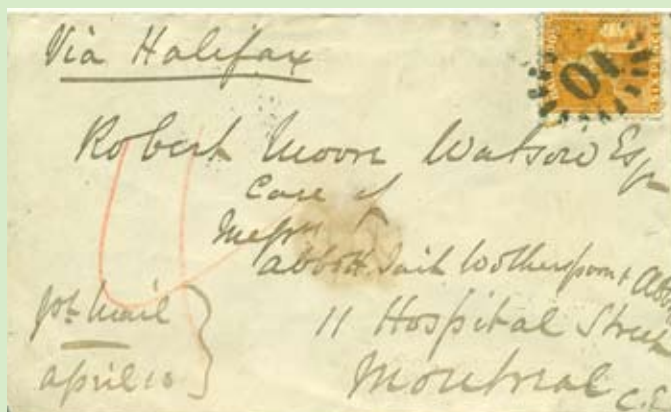 Via Halifax
Robert Moore Watson Esqr
Care of
Messrs
Abbott Tait Wotherspoon &
11 Hospital Street
Montreal
C.E.
Mail
April 10
01
4